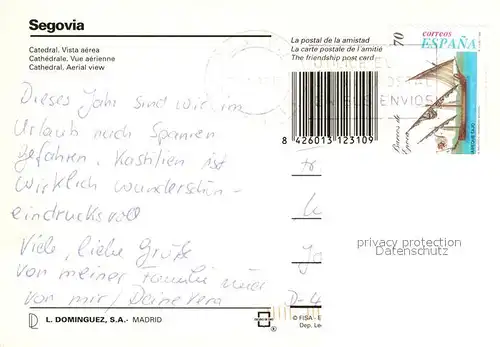 Segovia
Catedral. Vista aérea
Cathédrale. Vue aérienne
Cathedral. Aerial view
La postal de la amistad
La carte postale de l'amitié
The friendship post card
70
correos
ESPAÑA
Barcos de
Época
EN SUS ENVIOS
8 426013 123109
Dieses Jahr sind wir im
Urlaub nach Spanien
gefahren. Kastilien ist
wirklich wunderschön -
eindrucksvoll
Viele, liebe Grüße
von meiner Familie und
von mir / Deine Vera
privacy protection
Datenschutz
D-4
L. DOMINGUEZ, S.A.- MADRID
© FISA - E
Dep. Le